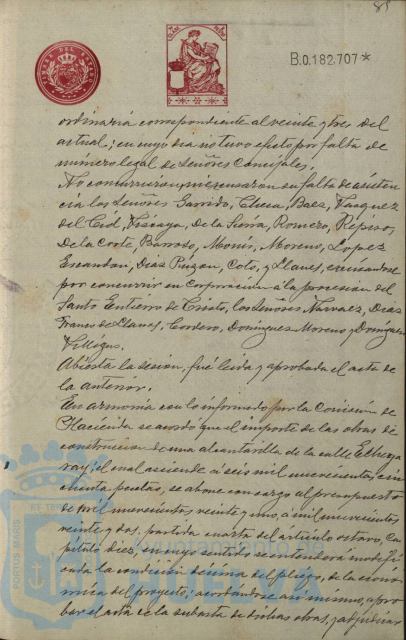 85
TIMBRE DEL ESTADO
B.0.182.707*
ordinaria correspondiente al veinte y tres del
actual; en cuyo dia no tuvo efecto por falta de
número legal de Señores Concejales.
No concurrieron, ni escusaron su falta de asisten
cia los Señores Garrido, Checa, Baez, Vazquez
del Cid, Vizcaya, De la Sierra, Romero, Repiso,
De la Corte, Barroso, Monís, Moreno, Lopez
Escandon, Dias Pinzon, Coto, y Llanes, escusandose
por concurrir en Corporación á la procesion del
Santo Entierro de Cristo, los Señores Narvaez, Dias
Franco de Llanes, Cordero, Dominguez Moreno y Dominguez
Villegas.
Abierta la sesion, fué leida y aprobada el acta de
la anterior.
En armonía con lo informado por la Comision de
Hacienda se acordo que el importe de las obras de
construccion de una alcantarilla de la calle Echega
ray; el cual asciende á seis mil novecientas cin
cuenta pesetas, se abone con cargo al presupuesto
de mil novecientos veinte y uno, á mil novecientos
veinte y dos, partida cuarta del articulo octavo, Ca
pítulo diez, en cuyo sentido se entenderá modifi
cada la condicion décima del pliego, de la econo
mica del proyecto; acordándose asi mismo, apro
bar el acta de la subasta de dichas obras, y adjudicar
PORTUS MARIS